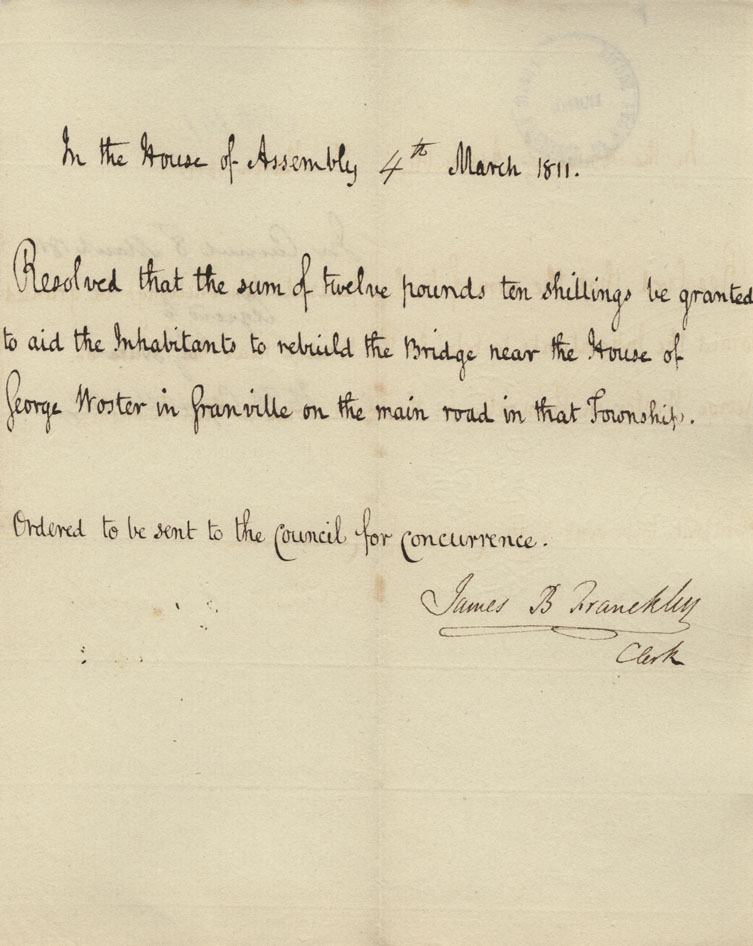 In the House of Assembly 4th March 1811.
Resolved that the sum of twelve pounds ten shillings be granted
to aid the Inhabitants to rebuild the Bridge near the House of
George Woster in Granville on the main road in that Township.
Ordered to be sent to the Council for concurrence.
James B Franckley
Clerk